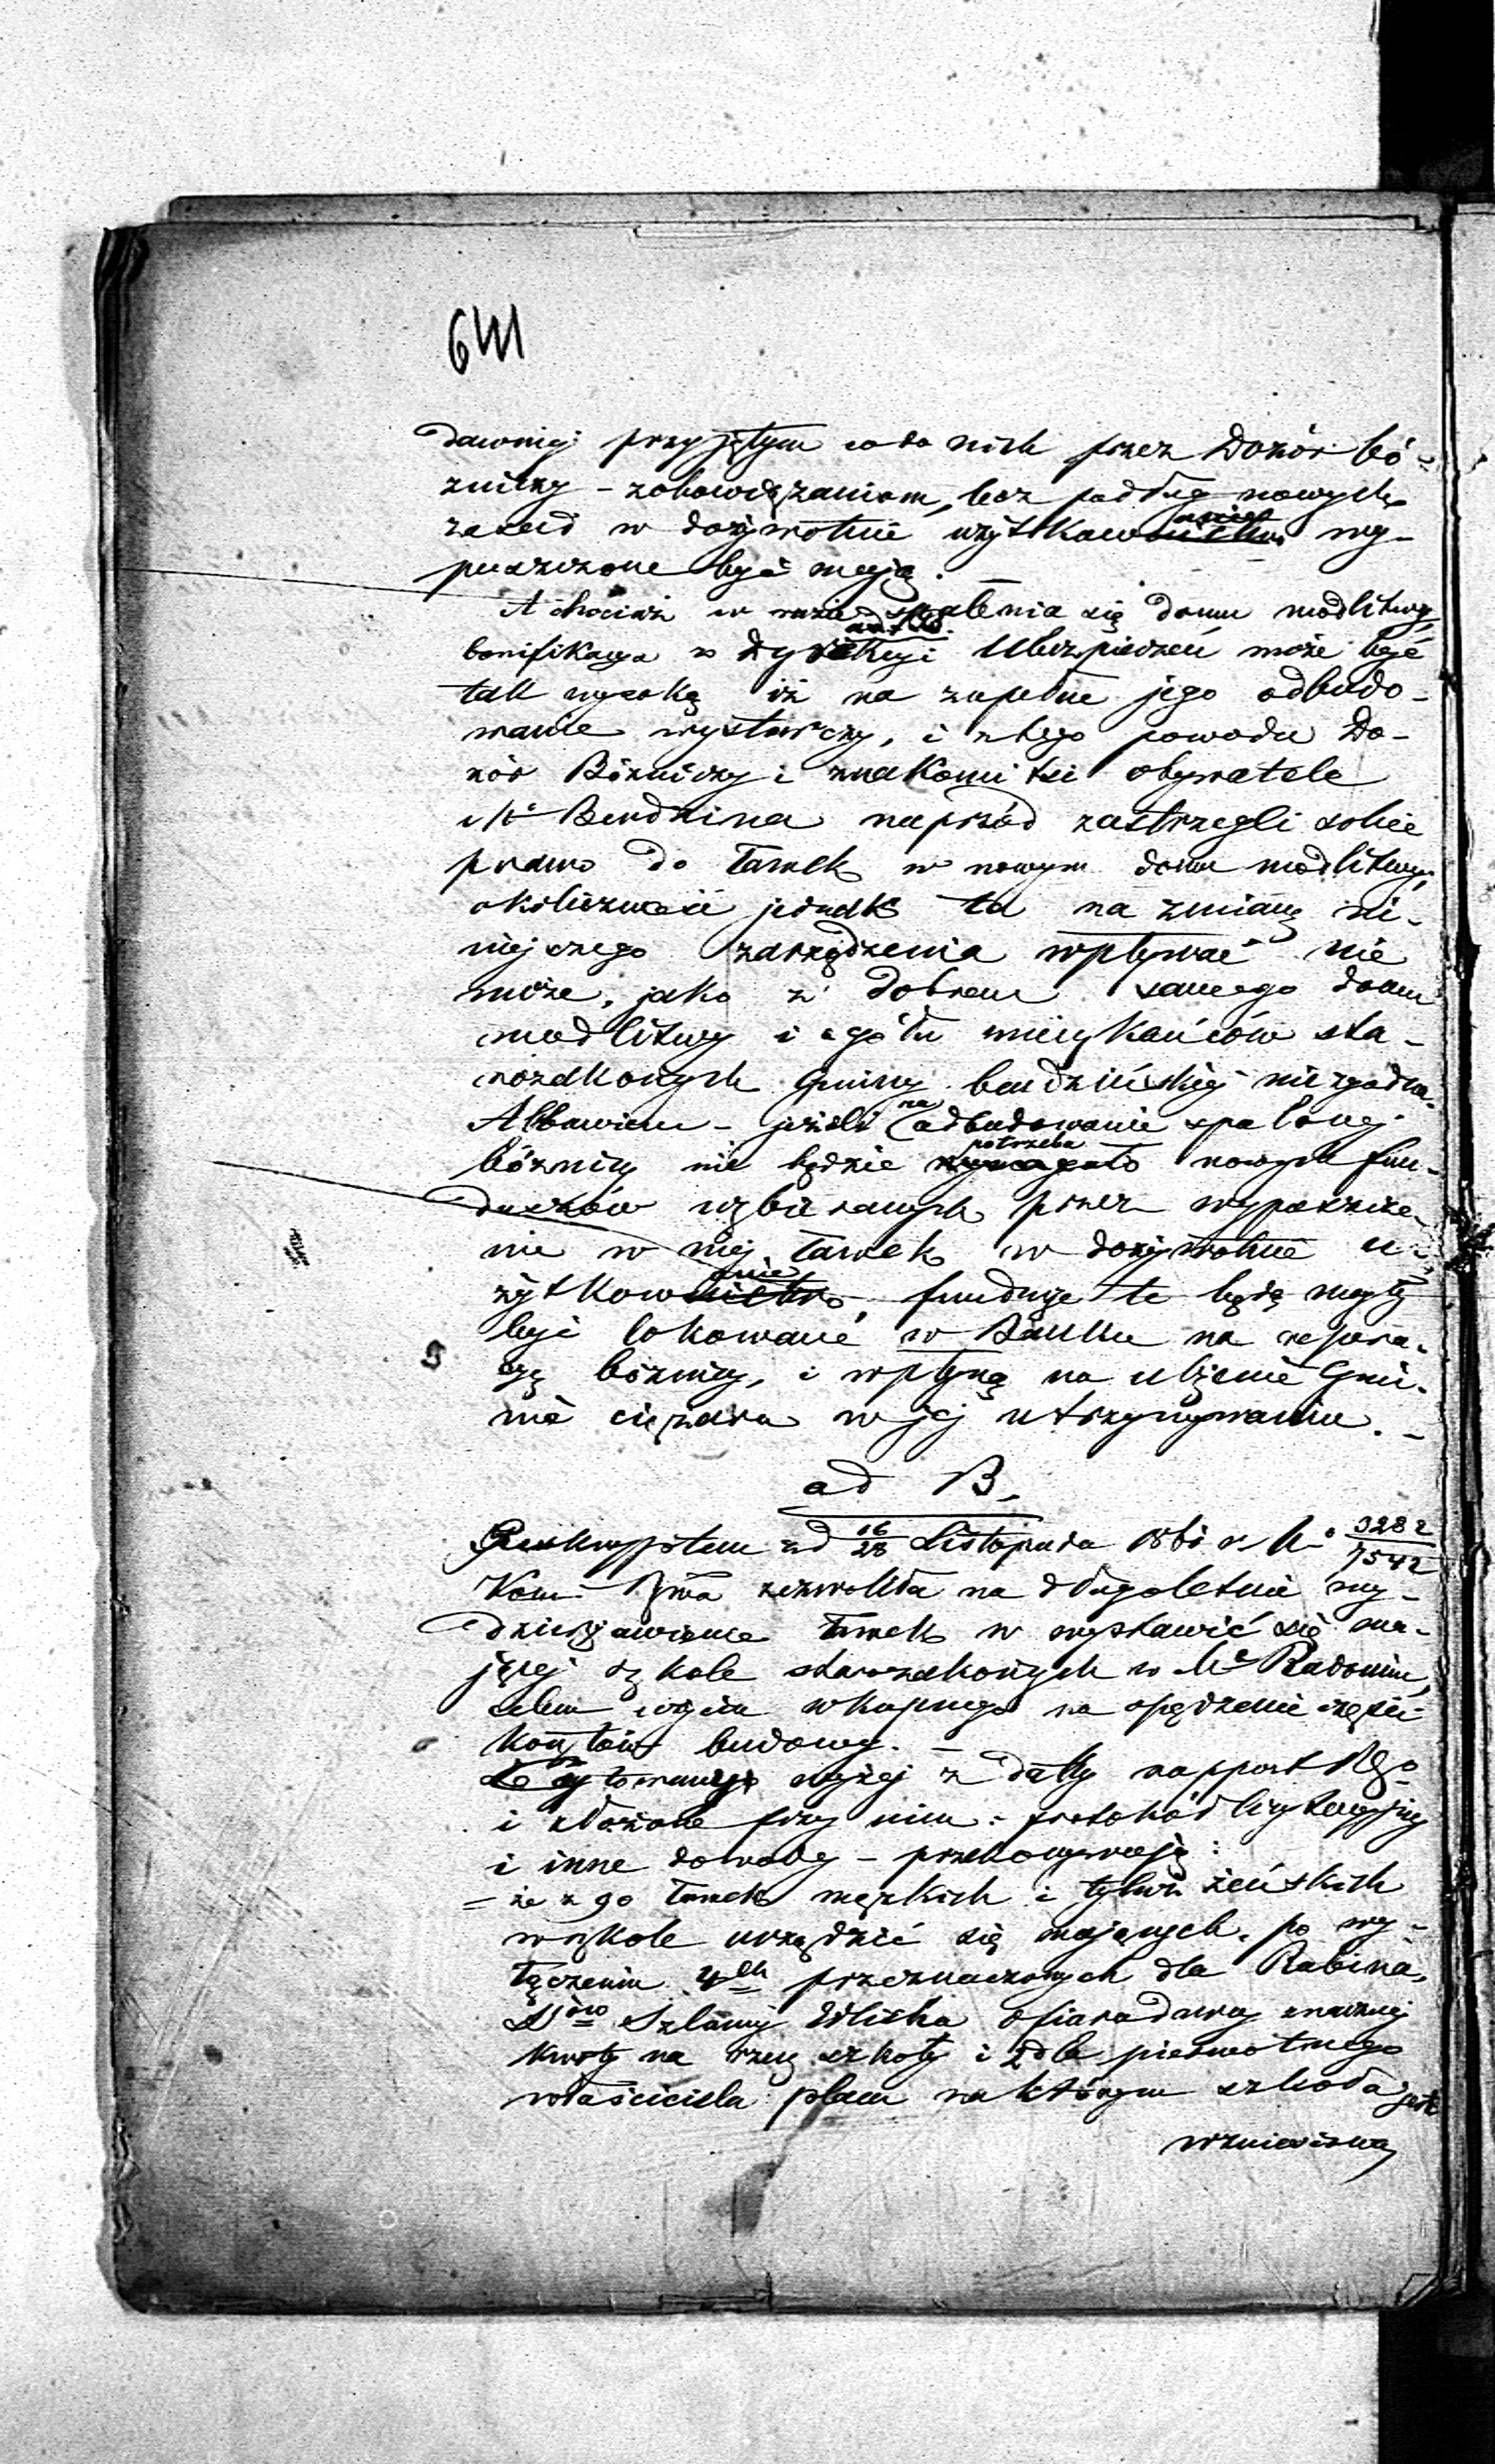 641
dawniej przyjętym co do nich przez Dozór bó-
żniczy – zobowiązaniom, lecz podług nowych
zasad w dożywotnie użytkowanie wy-
puszczone być mają. –
A chociaż w razie spalenia się domu modlitwy,
bonifikacya z Dyrekcyi Ubezpieczeń może być
tak wysoką iż na zupełne jego odbudo-
wanie wystarczy, i z tego powodu Do-
zór Bóżniczy i znakomitsi obywatele
Mta Bendzina naprzód zastrzegli sobie
prawo do ławek w nowym domu modlitwy,
okoliczność jednak ta na zmianę ni-
niejszego zarządzenia wpływać nie
może, jako z dobrem samego domu
modlitwy i ogółu mieszkańców sta-
rozakonnych Gminy bendzińskiej niezgodna.
Albowiem – jeżeli na odbudowanie spalonej
bóżnicy nie będzie potrzeba nowych fun-
duszów uzbieranych przez wypuszcze-
nie w niej ławek w dożywotnie u-
żytkowanie, fundusze te będą mogły
być lokowane w Banku na repera-
cyę bóżnicy, i wpłyną na ulżenie Gmi-
nie ciężaru w jej utrzymywaniu. –
ad B.
Reskryptem z d 16/28 Listopada 186 r. N. 3282/7542
Kom. Rwa zezwoliła na długoletnie wy-
dzierżawienie ławek w wystawić się ma-
jącej szkole starozakonnych w Mie Radomiu,
celem użycia wkupnego na opędzenie części
kosztów budowy. –
wyżej z daty rapport RGo
i złożone przy nim: protokół licytacyjny
i inne dowody – przekonywają:
= że z 90 ławek męzkich i tyluż żeńskich
w szkole urządzić się mających, po wy-
łączeniu 4ch przeznaczonych dla Rabina,
Szlamy ofiarodawcy znacznej
kwoty na rzecz szkoły i 2 dla pierwotnego
właściciela placu na którym szkoła jest
wzniesiona,